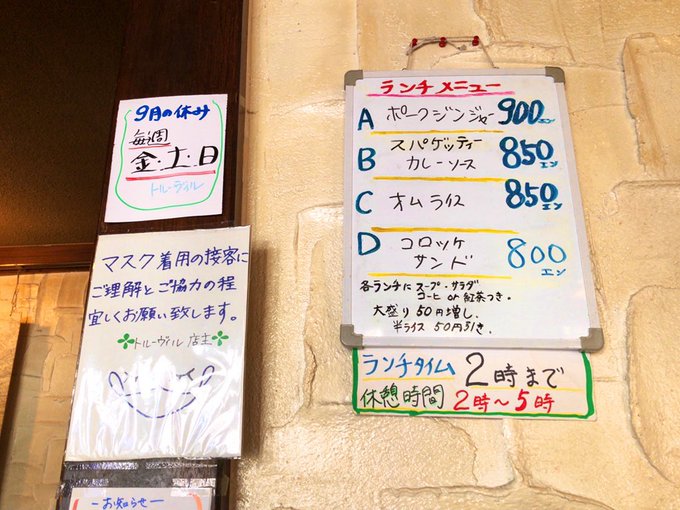 9月の休み
毎週
金・土・日
トルーヴィル
マスク着用の接客に
ご理解とご協力の程
宜しくお願い致します。
トルーヴィル 店主
ーお知らせー
ランチメニュー
A ポークジンジャー 900エン
B スパゲッティー
カレーソース 850エン
C オムライス 850エン
D コロッケ
サンド 800エン
各ランチに スープ・サラダ
コーヒー or 紅茶つき。
大盛り 50円増し、
半ライス 50円引き。
ランチタイム 2時まで
休憩時間 2時～5時